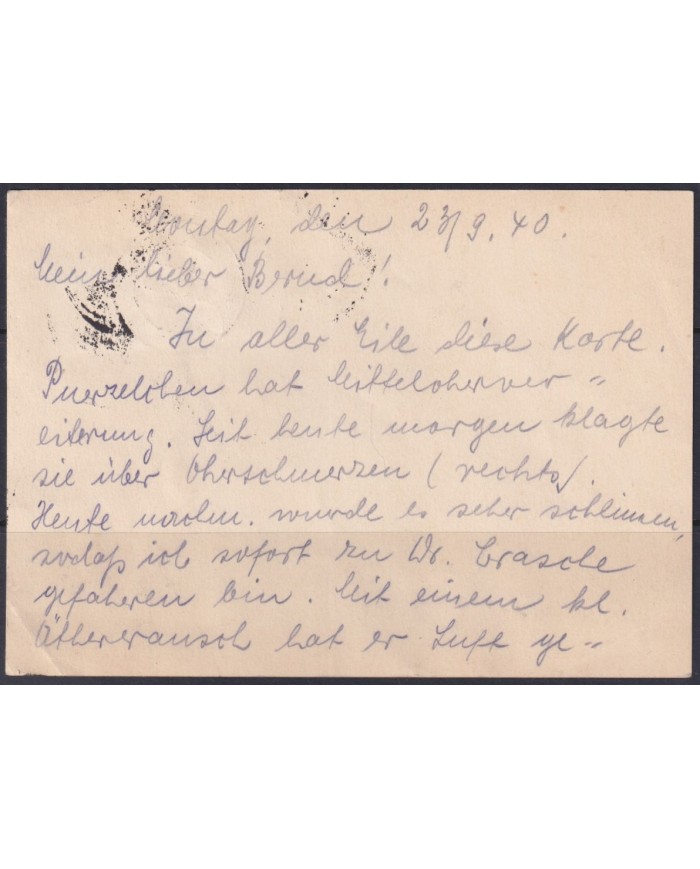 Montag, den 23/9. 40.
Mein lieber Bernd!
In aller Eile diese Karte.
Puerzelchen hat Mittelohrver=
eiterung. Seit heute morgen klagte
sie über Ohrschmerzen (rechts).
Heute nachm. wurde es sehr schlimm,
sodaß ich sofort zu Dr.
gefahren bin. Mit einem kl.
Ätherrausch hat er Luft ge=